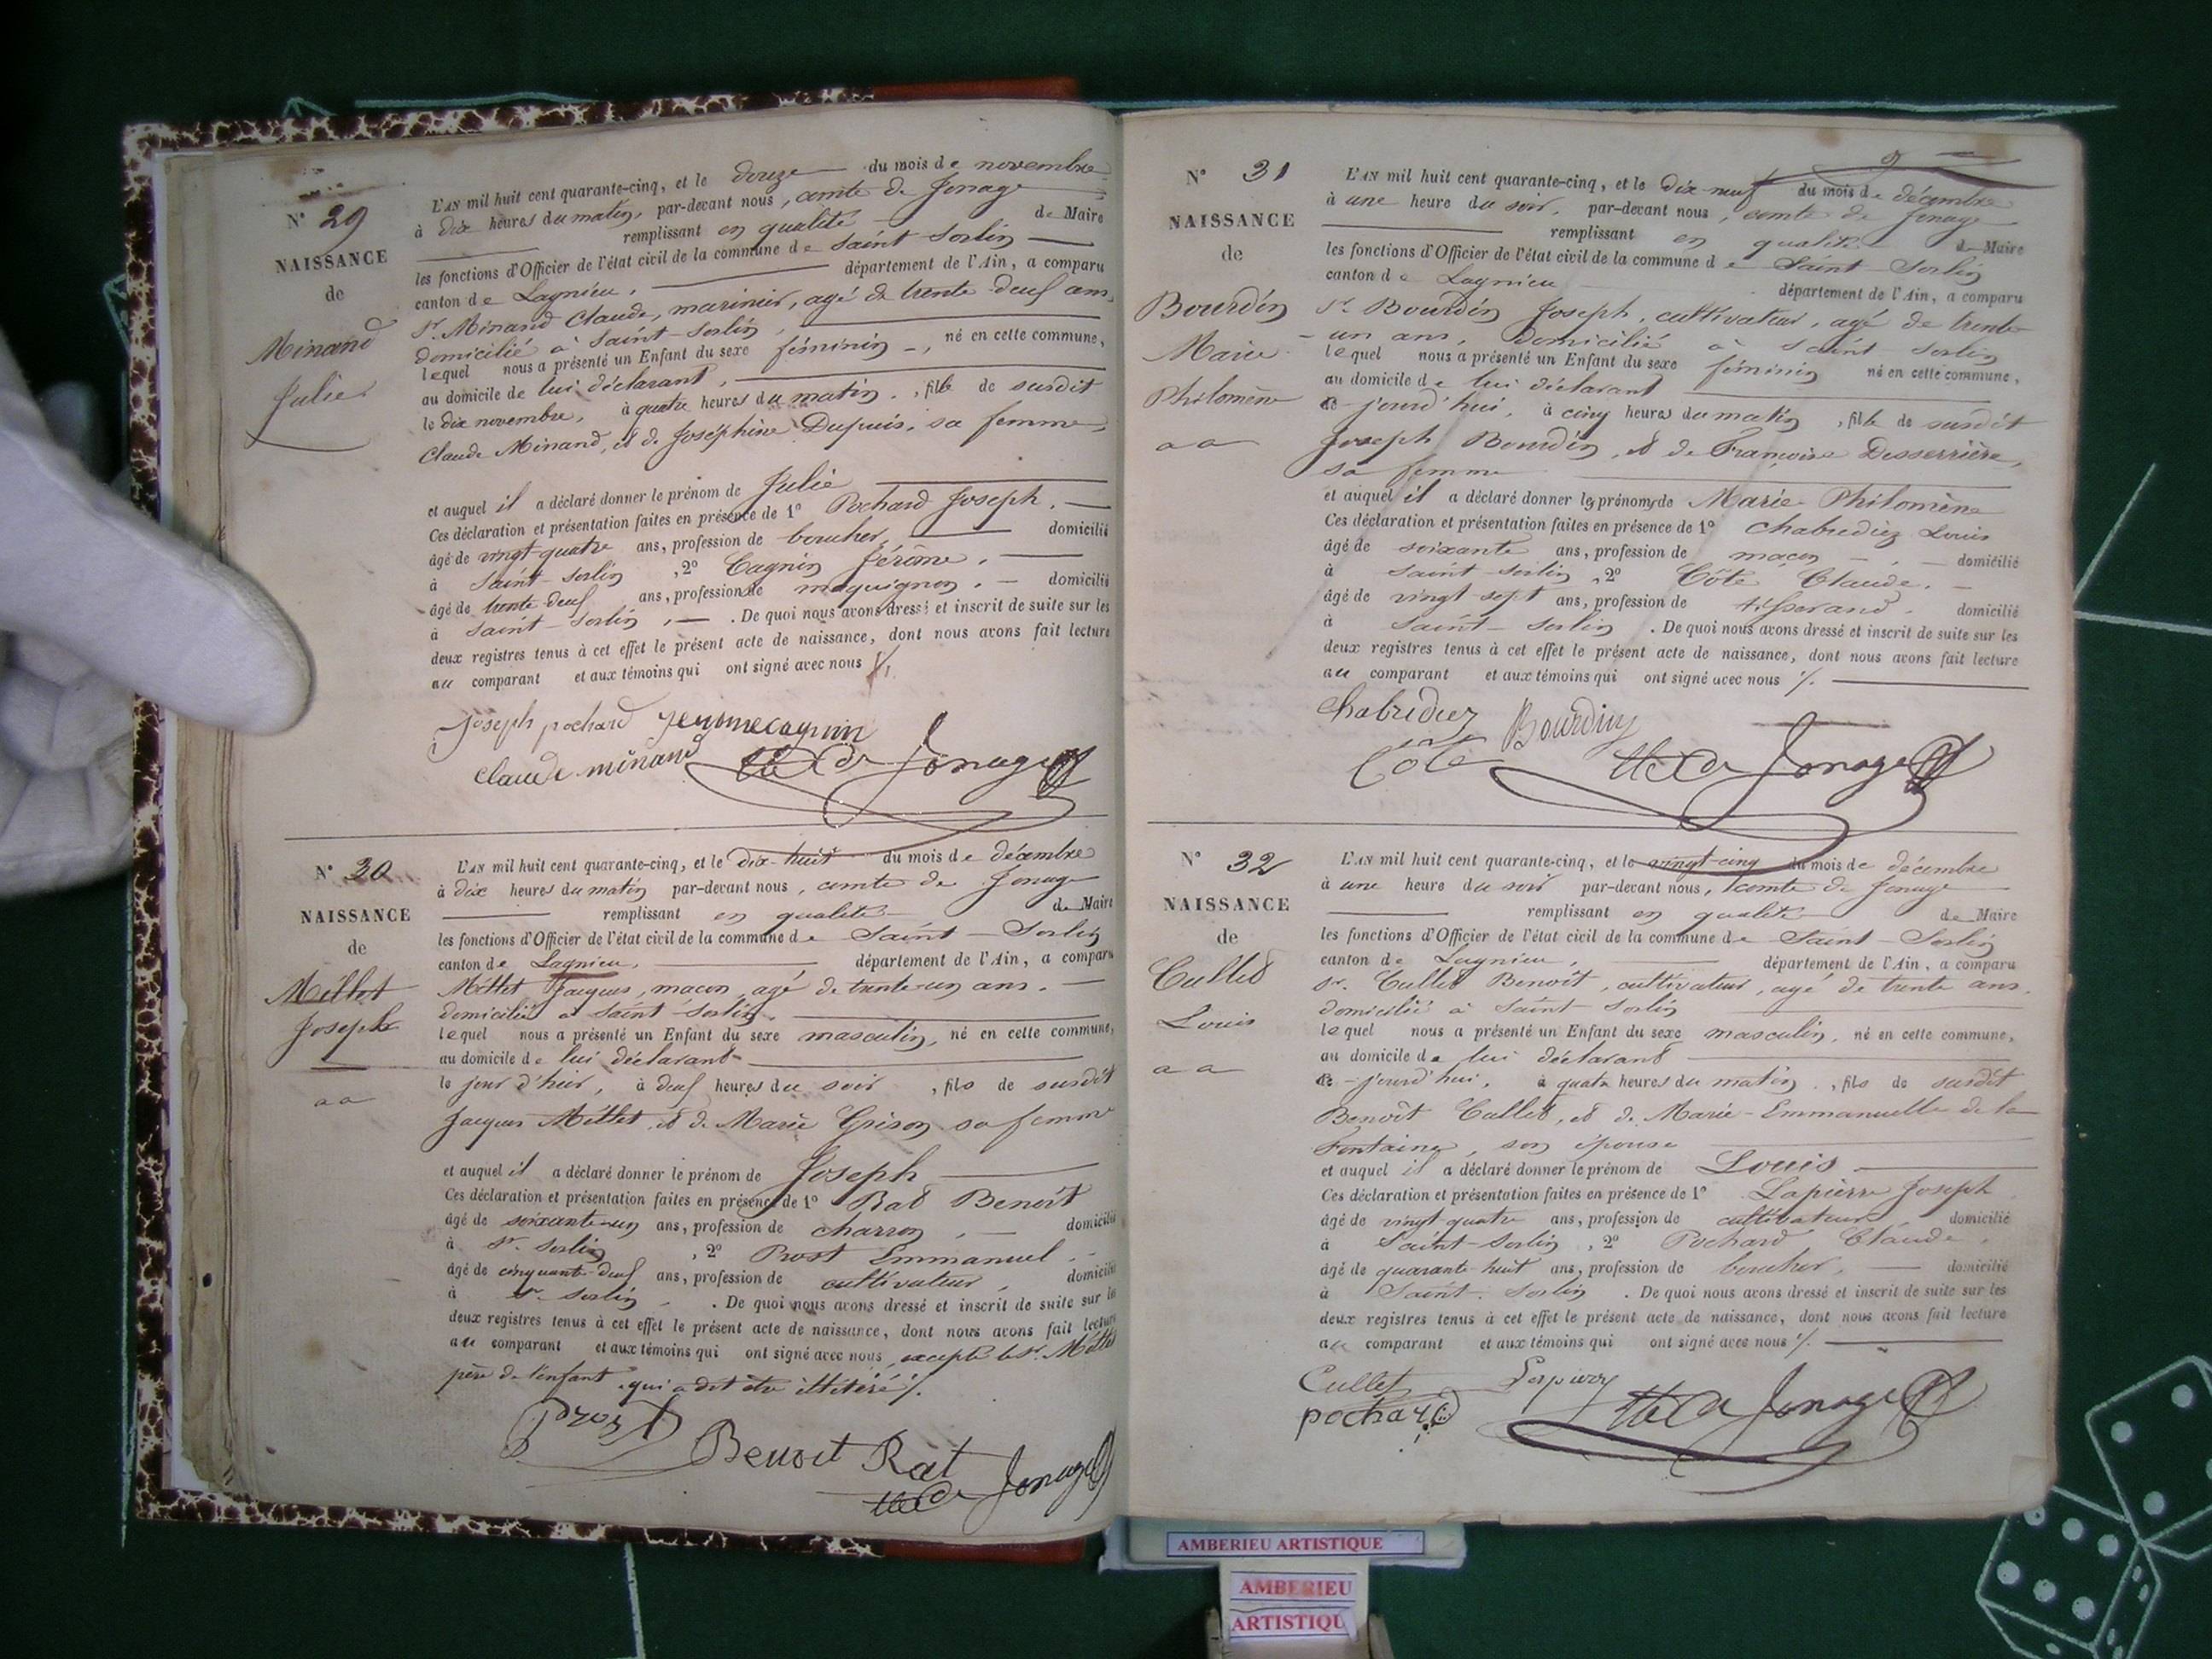 N° 29
NAISSANCE
de
Minand
Julie
L'AN mil huit cent quarante-cinq, et le douze du mois de novembre
à dix heures du matin, par-devant nous, comte de Jonage
remplissant en qualité de Maire
les fonctions d'Officier de l'état civil de la commune de Saint-Sorlin
canton de Lagnieu, département de l'Ain, a comparu
Sr. Minand Claude, marinier, agé de trente-deux ans,
domicilié à Saint-Sorlin,
lequel nous a présenté un Enfant du sexe féminin, né en cette commune,
au domicile de lui déclarant,
le dix novembre, à quatre heures du matin, fille de susdit
Claude Minand, et de Joséphine Dupuis, sa femme,
et auquel il a déclaré donner le prénom de Julie
Ces déclaration et présentation faites en présence de 1° Pochard Joseph,
âgé de vingt-quatre ans, profession de boucher, domicilié
à Saint-Sorlin, 2° Cagnin Jérôme,
âgé de trente-deux ans, profession de maquignon, domicilié
à Saint-Sorlin, . De quoi nous avons dressé et inscrit de suite sur les
deux registres tenus à cet effet le présent acte de naissance, dont nous avons fait lecture
au comparant et aux témoins qui ont signé avec nous
joseph pochard jeromecagnin
claude minand de Jonage
N° 30
NAISSANCE
de
Millet
Joseph
L'AN mil huit cent quarante-cinq, et le dix-huit du mois de décembre
à dix heures du matin par-devant nous, comte de Jonage
remplissant en qualité de Maire
les fonctions d'Officier de l'état civil de la commune de Saint-Sorlin
canton de Lagnieu, département de l'Ain, a comparu
Millet Jacques, macon, agé de trente-un ans.
domicilié à Saint-Sorlin.
lequel nous a présenté un Enfant du sexe masculin, né en cette commune,
au domicile de lui déclarant
le jour d'hier, à deux heures du soir, fils de susdit
Jacques Millet, et de Marie Grison sa femme
et auquel il a déclaré donner le prénom de Joseph
Ces déclaration et présentation faites en présence de 1° Rat Benoît
âgé de soixante-un ans, profession de charron, domicilié
à St. Sorlin, 2° Prost Emmanuel.
âgé de cinquante-deux ans, profession de cultivateur, domicilié
à St. Sorlin . De quoi nous avons dressé et inscrit de suite sur les
deux registres tenus à cet effet le présent acte de naissance, dont nous avons fait lecture
au comparant et aux témoins qui ont signé avec nous, excepté le Sr. Millet
père de l'enfant, qui a dit être illitéré
Prost
Benoit Rat
de Jonage
N° 31
NAISSANCE
de
Bourdin
Marie
Philomène
L'AN mil huit cent quarante-cinq, et le dix-neuf du mois de décembre
à une heure du soir, par-devant nous, comte de Jonage
remplissant en qualité de Maire
les fonctions d'Officier de l'état civil de la commune de Saint-Sorlin
canton de Lagnieu département de l'Ain, a comparu
Sr. Bourdin Joseph, cultivateur, agé de trente-
un ans, domicilié à Saint Sorlin
lequel nous a présenté un Enfant du sexe féminin né en cette commune,
au domicile de lui déclarant
ce-jourd'hui, à cinq heures du matin, fille de susdit
Joseph Bourdin, et de Françoise Desserrière,
sa femme
et auquel il a déclaré donner les prénoms de Marie Philomène
Ces déclaration et présentation faites en présence de 1° Chabrediez Louis
âgé de soixante ans, profession de maçon domicilié
à Saint-Sorlin, 2° Côte Claude,
âgé de vingt-sept ans, profession de tisserand, domicilié
à Saint-Sorlin . De quoi nous avons dressé et inscrit de suite sur les
deux registres tenus à cet effet le présent acte de naissance, dont nous avons fait lecture
au comparant et aux témoins qui ont signé avec nous
Bourdin
Côte de Jonage
N° 32
NAISSANCE
de
Cullet
Louis
L'AN mil huit cent quarante-cinq, et le vingt-cinq du mois de décembre
à une heure du soir par-devant nous, comte de Jonage
remplissant en qualité de Maire
les fonctions d'Officier de l'état civil de la commune de Saint-Sorlin
canton de Lagnieu, département de l'Ain, a comparu
Sr. Cullet Benoît, cultivateur, agé de trente ans.
domicilié à Saint Sorlin
lequel nous a présenté un Enfant du sexe masculin, né en cette commune,
au domicile de lui déclarant
ce-jourd'hui, à quatre heures du matin, fils de susdit
Benoît Cullet, et de Marie-Emmanuelle de la
Fontaine, son épouse
et auquel il a déclaré donner le prénom de Louis
Ces déclaration et présentation faites en présence de 1° Lapierre Joseph
âgé de vingt quatre ans, profession de cultivateur, domicilié
à Saint-Sorlin, 2° Pochard Claude,
âgé de quarante-huit ans, profession de boucher, domicilié
à Saint-Sorlin . De quoi nous avons dressé et inscrit de suite sur les
deux registres tenus à cet effet le présent acte de naissance, dont nous avons fait lecture
au comparant et aux témoins qui ont signé avec nous
Cullet
pochard de Jonage
AMBERIEU ARTISTIQUE
AMBERIEU
ARTISTIQU